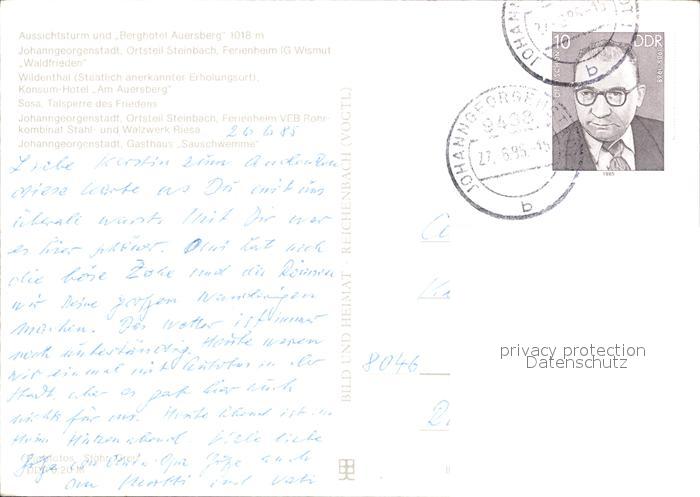 Aussichtsturm und „Berghotel Auersberg" 1018 m
Johanngeorgenstadt, Ortsteil Steinbach, Ferienheim IG Wismut
„Waldfrieden"
Wildenthal (Staatlich anerkannter Erholungsort),
Konsum-Hotel „Am Auersberg"
Sosa, Talsperre des Friedens
Johanngeorgenstadt, Ortsteil Steinbach, Ferienheim VEB Rohr-
kombinat Stahl- und Walzwerk Riesa
Johanngeorgenstadt, Gasthaus „Sauschwemme"
26.6.85
Liebe Kerstin zum Andenken
diese Karte wo Du mit uns
überall warst. Mit Dir war
es hier schöner. Omi hat noch
die böse Zehe und da können
wir keine großen Wanderungen
machen. Das Wetter ist immer
noch unbeständig. Heute waren
wir einmal mit Autobus in der
Stadt, aber es gab hier auch
nichts für uns. Heute Abend ist
Heim Hutzenabend. Viele liebe
Grüße von Deiner Oma auch
an und Vati
BILD UND HEIMAT · REICHENBACH (VOGTL)
10 DDR
1985
JOHANNGEORGENSTADT
9438
27.6.85
b
8046
privacy protection
Datenschutz